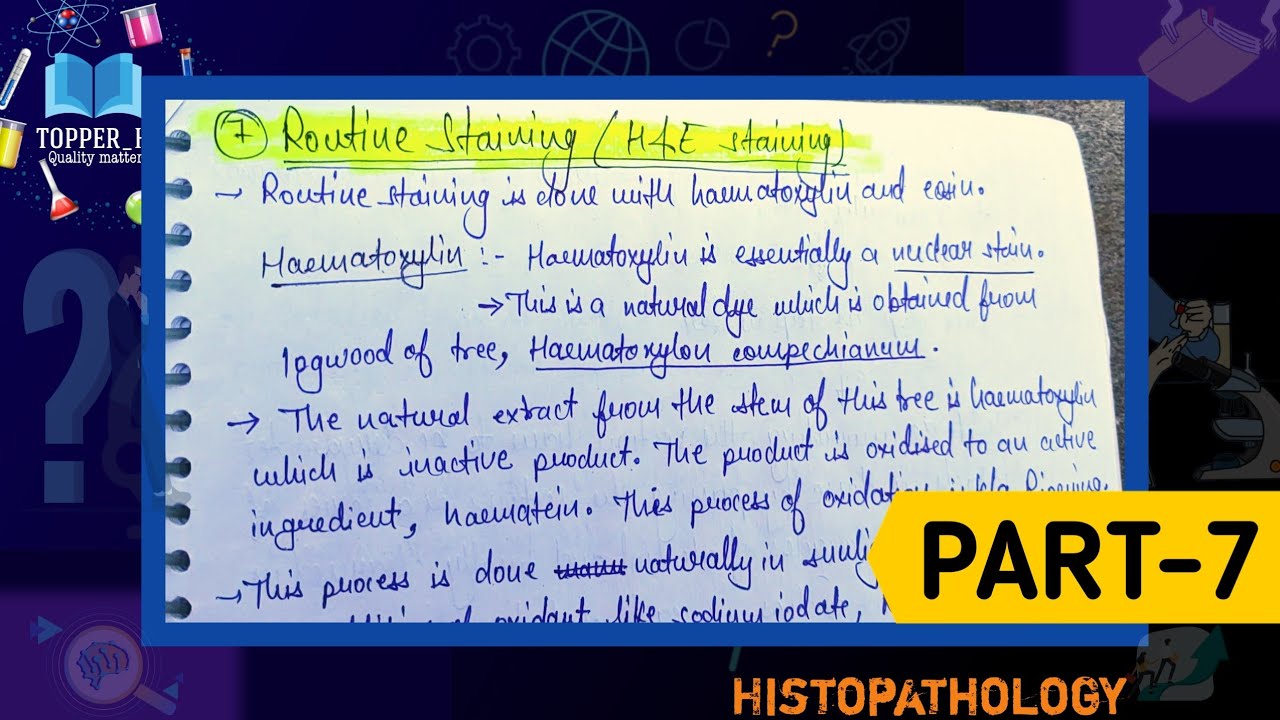 TOPPER_H
Quality matter
⑦ Routine Staining (H&E staining)
→ Routine staining is done with haematoxylin and eosin.
Haematoxylin :- Haematoxylin is essentially a nuclear stain.
→ This is a natural dye which is obtained from
logwood of tree, Haematoxylon compechianum.
→ The natural extract from the stem of this tree is haematoxylin
which is inactive product. The product is oxidised to an active
ingredient, haematein. This process of oxidation is k/a Ripening.
→ This process is done naturally in
oxidant like sodium iodate,
PART-7
HISTOPATHOLOGY